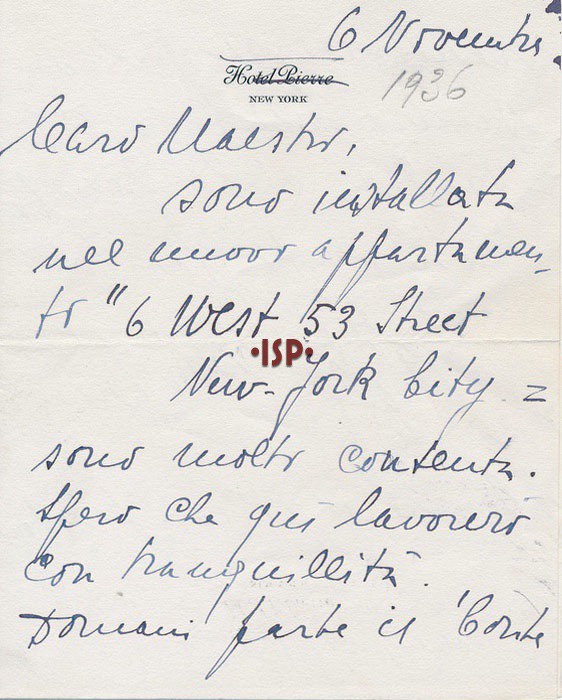 6 Novembre
Hotel Pierre
NEW YORK
1936
Caro Maestro,
sono installata
nel nuovo appartamen-
to "6 West 53 Street
·ISP·
New-York City =
sono molto contenta.
Spero che qui lavorerò
con tranquillità.
Domani parte il "Conte